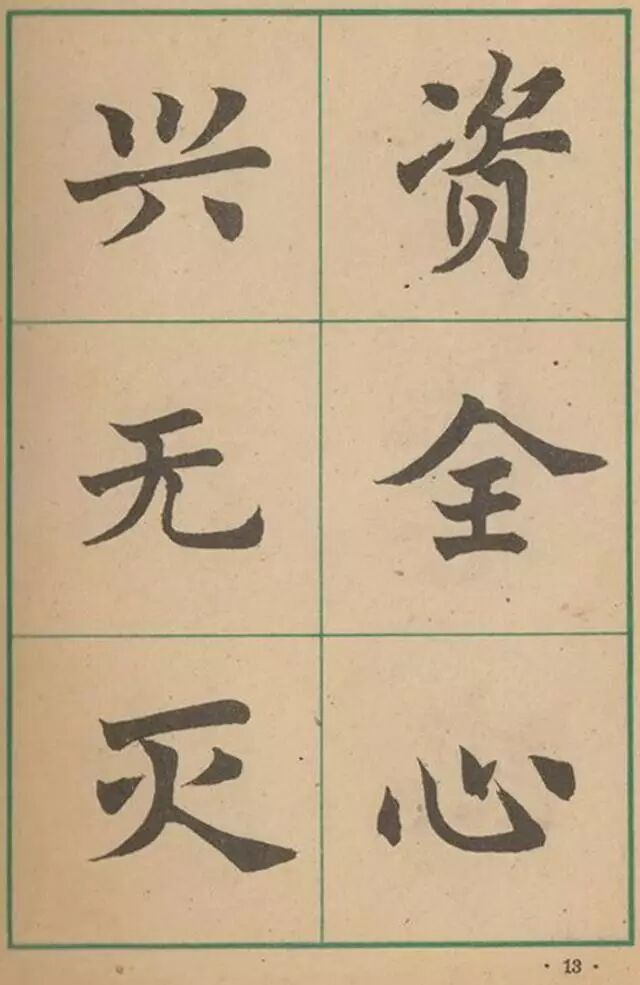 兴无灭
资全心
· 13 ·